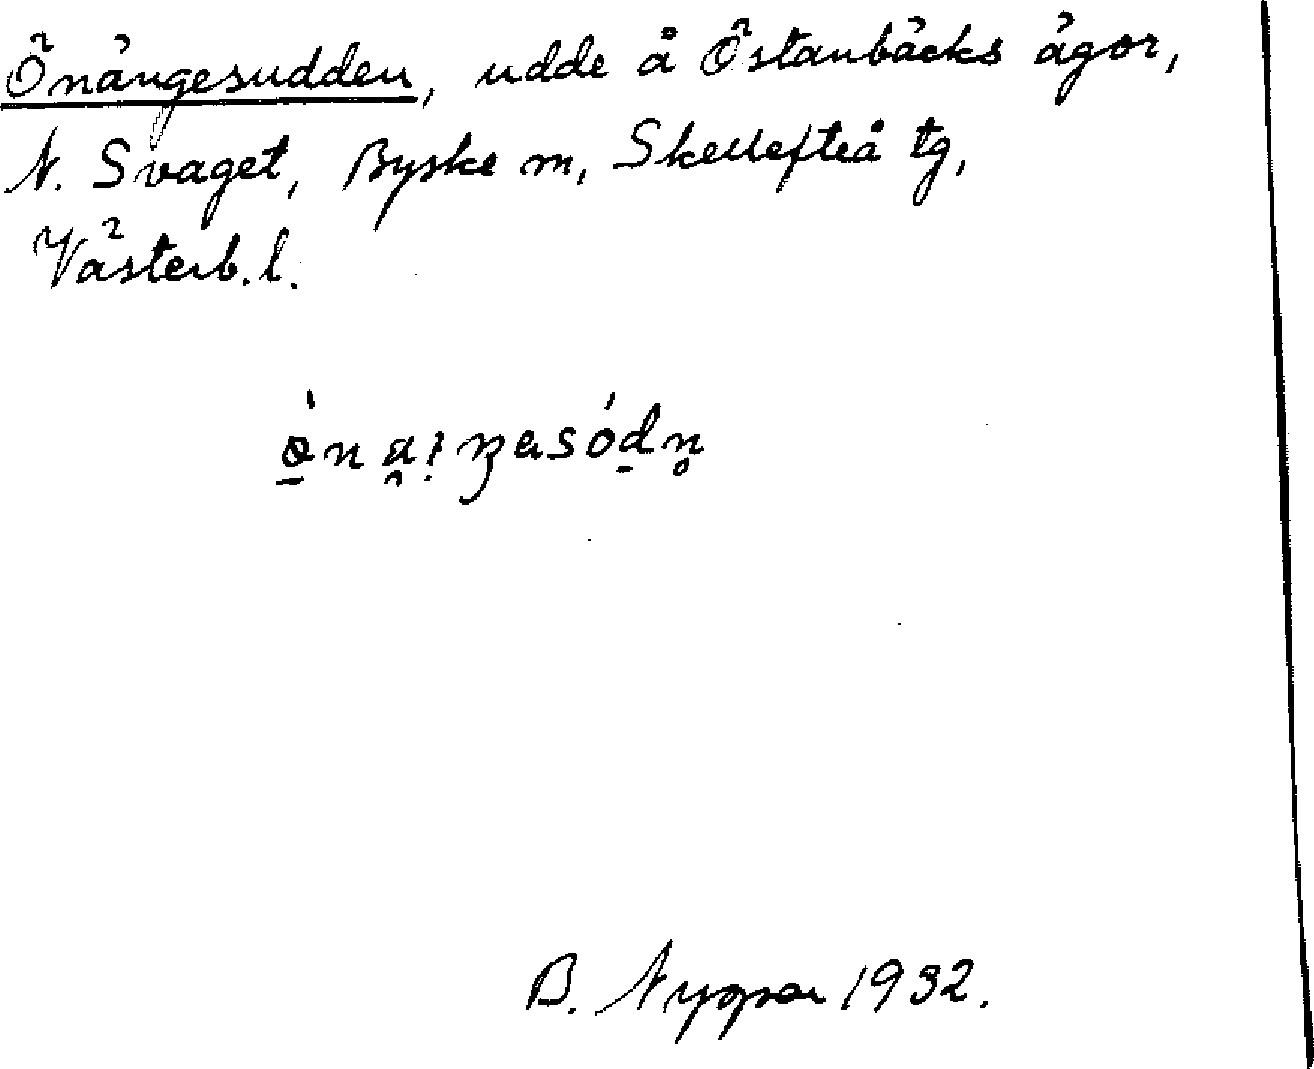 Önängesudden, udde å Östanbäcks ägor,
N. Svaget, Byske m, Skellefteå tg,
Västerb.l.
B. 1932.